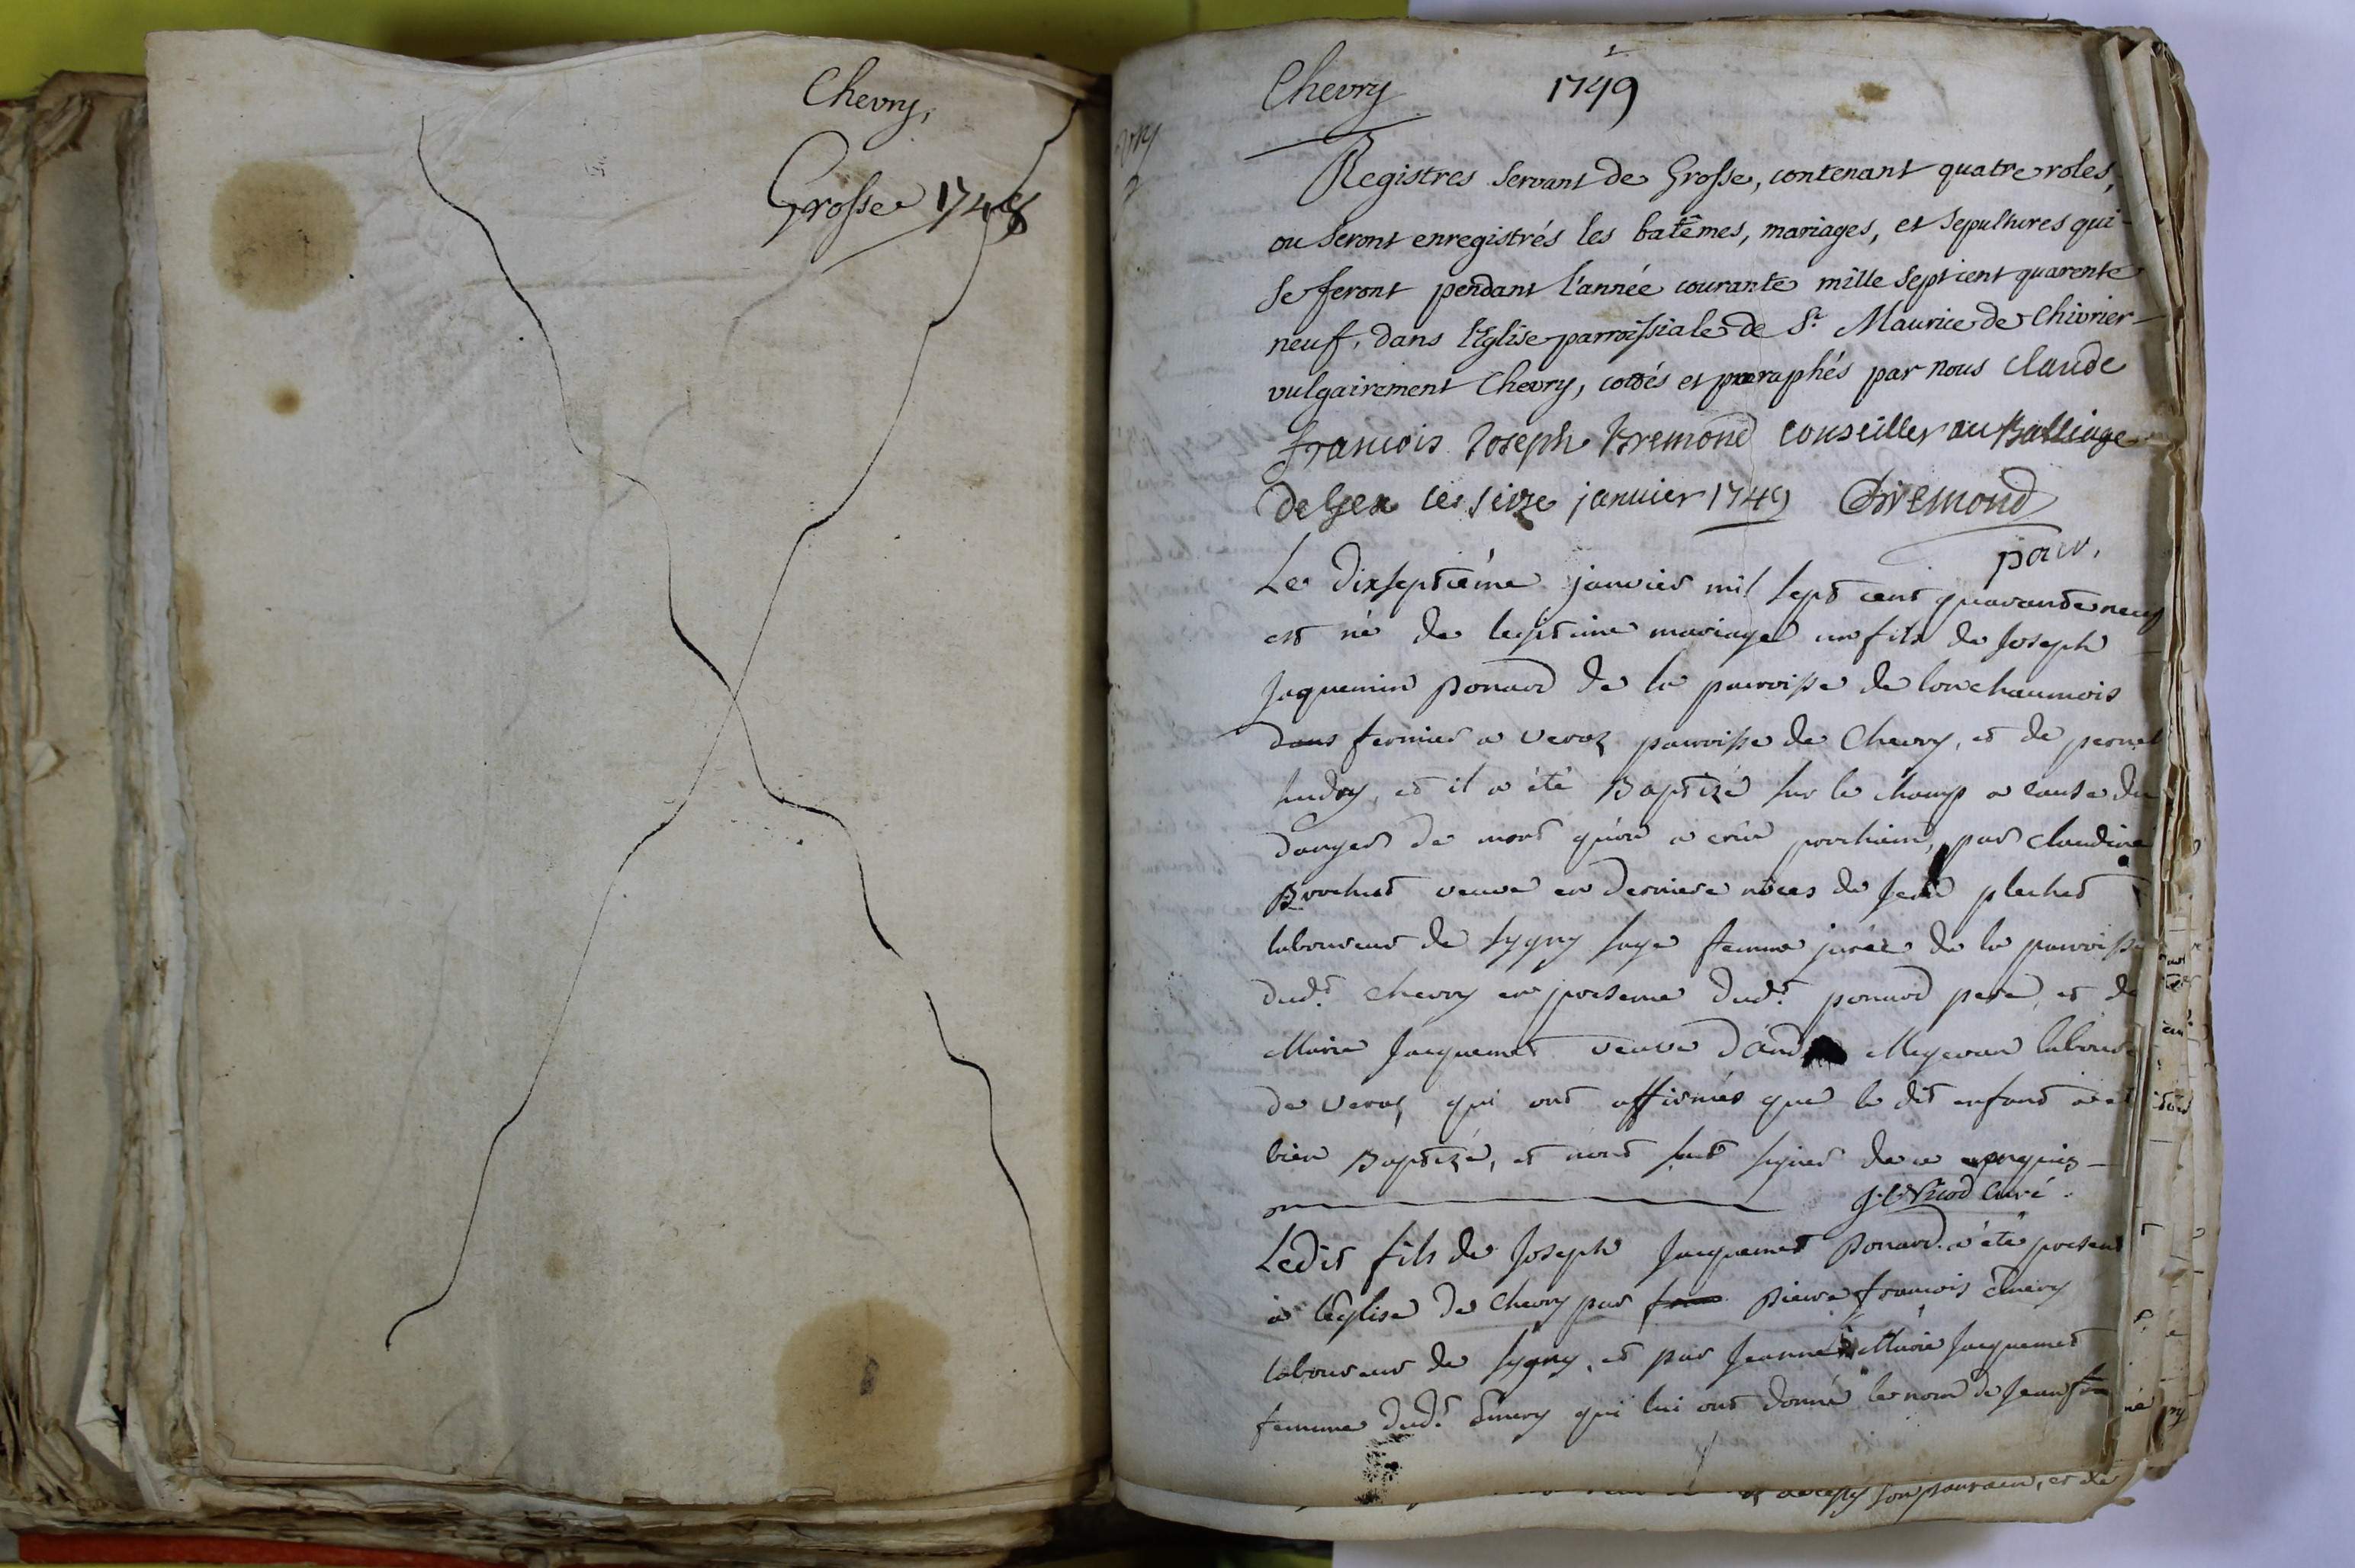 Chevry,
Grosse 1748
Chevry 1749
Registres servant de Grosse, contenant quatre roles,
ou seront enregistrés les batêmes, mariages, et sepultures qui
se feront pendant l'année courante mille sept cent quarente
neuf, dans l'Eglise parroissiale de St. Maurice de Chivrier
vulgairement Chevry, cottés et paraphés par nous Claude
francois Joseph Bremond conseiller au Balliage
de Gex ce seize janvier 1749 Bremond
Le dixseptième janvier mil sept cent quarante neuf
est né de legitime mariage un fils de Joseph
Jaquemin Ponard de la parroisse de Lonchaumois
dans fermier a Veraz parroisse de Chevry, et de
et il a été Baptizé sur le champ a cause du
danger de mort qu'on a crû prochain, par claudine
Brochut veuve en derniere nôces de
laboureur de sygny sage femme jurée de la parroisse
dudt. Chevry en presence dudt. ponard pere, et de
Marie Jacquemet veuve d'And Megevan
de Veraz qui ont affirmés que le dit enfant
bien Baptizé, et n'ont sçut signer de ce enquis
Nicod Curé.
Ledit fils de Joseph Jacquemet Ponard a été
à l'église de Chevry par Pierre francois Emery
laboureur de sygny, et par Jeanne Marie Jacquemet
femme dudt. Emery qui lui ont donné le nom de Jean
son parrain, et de